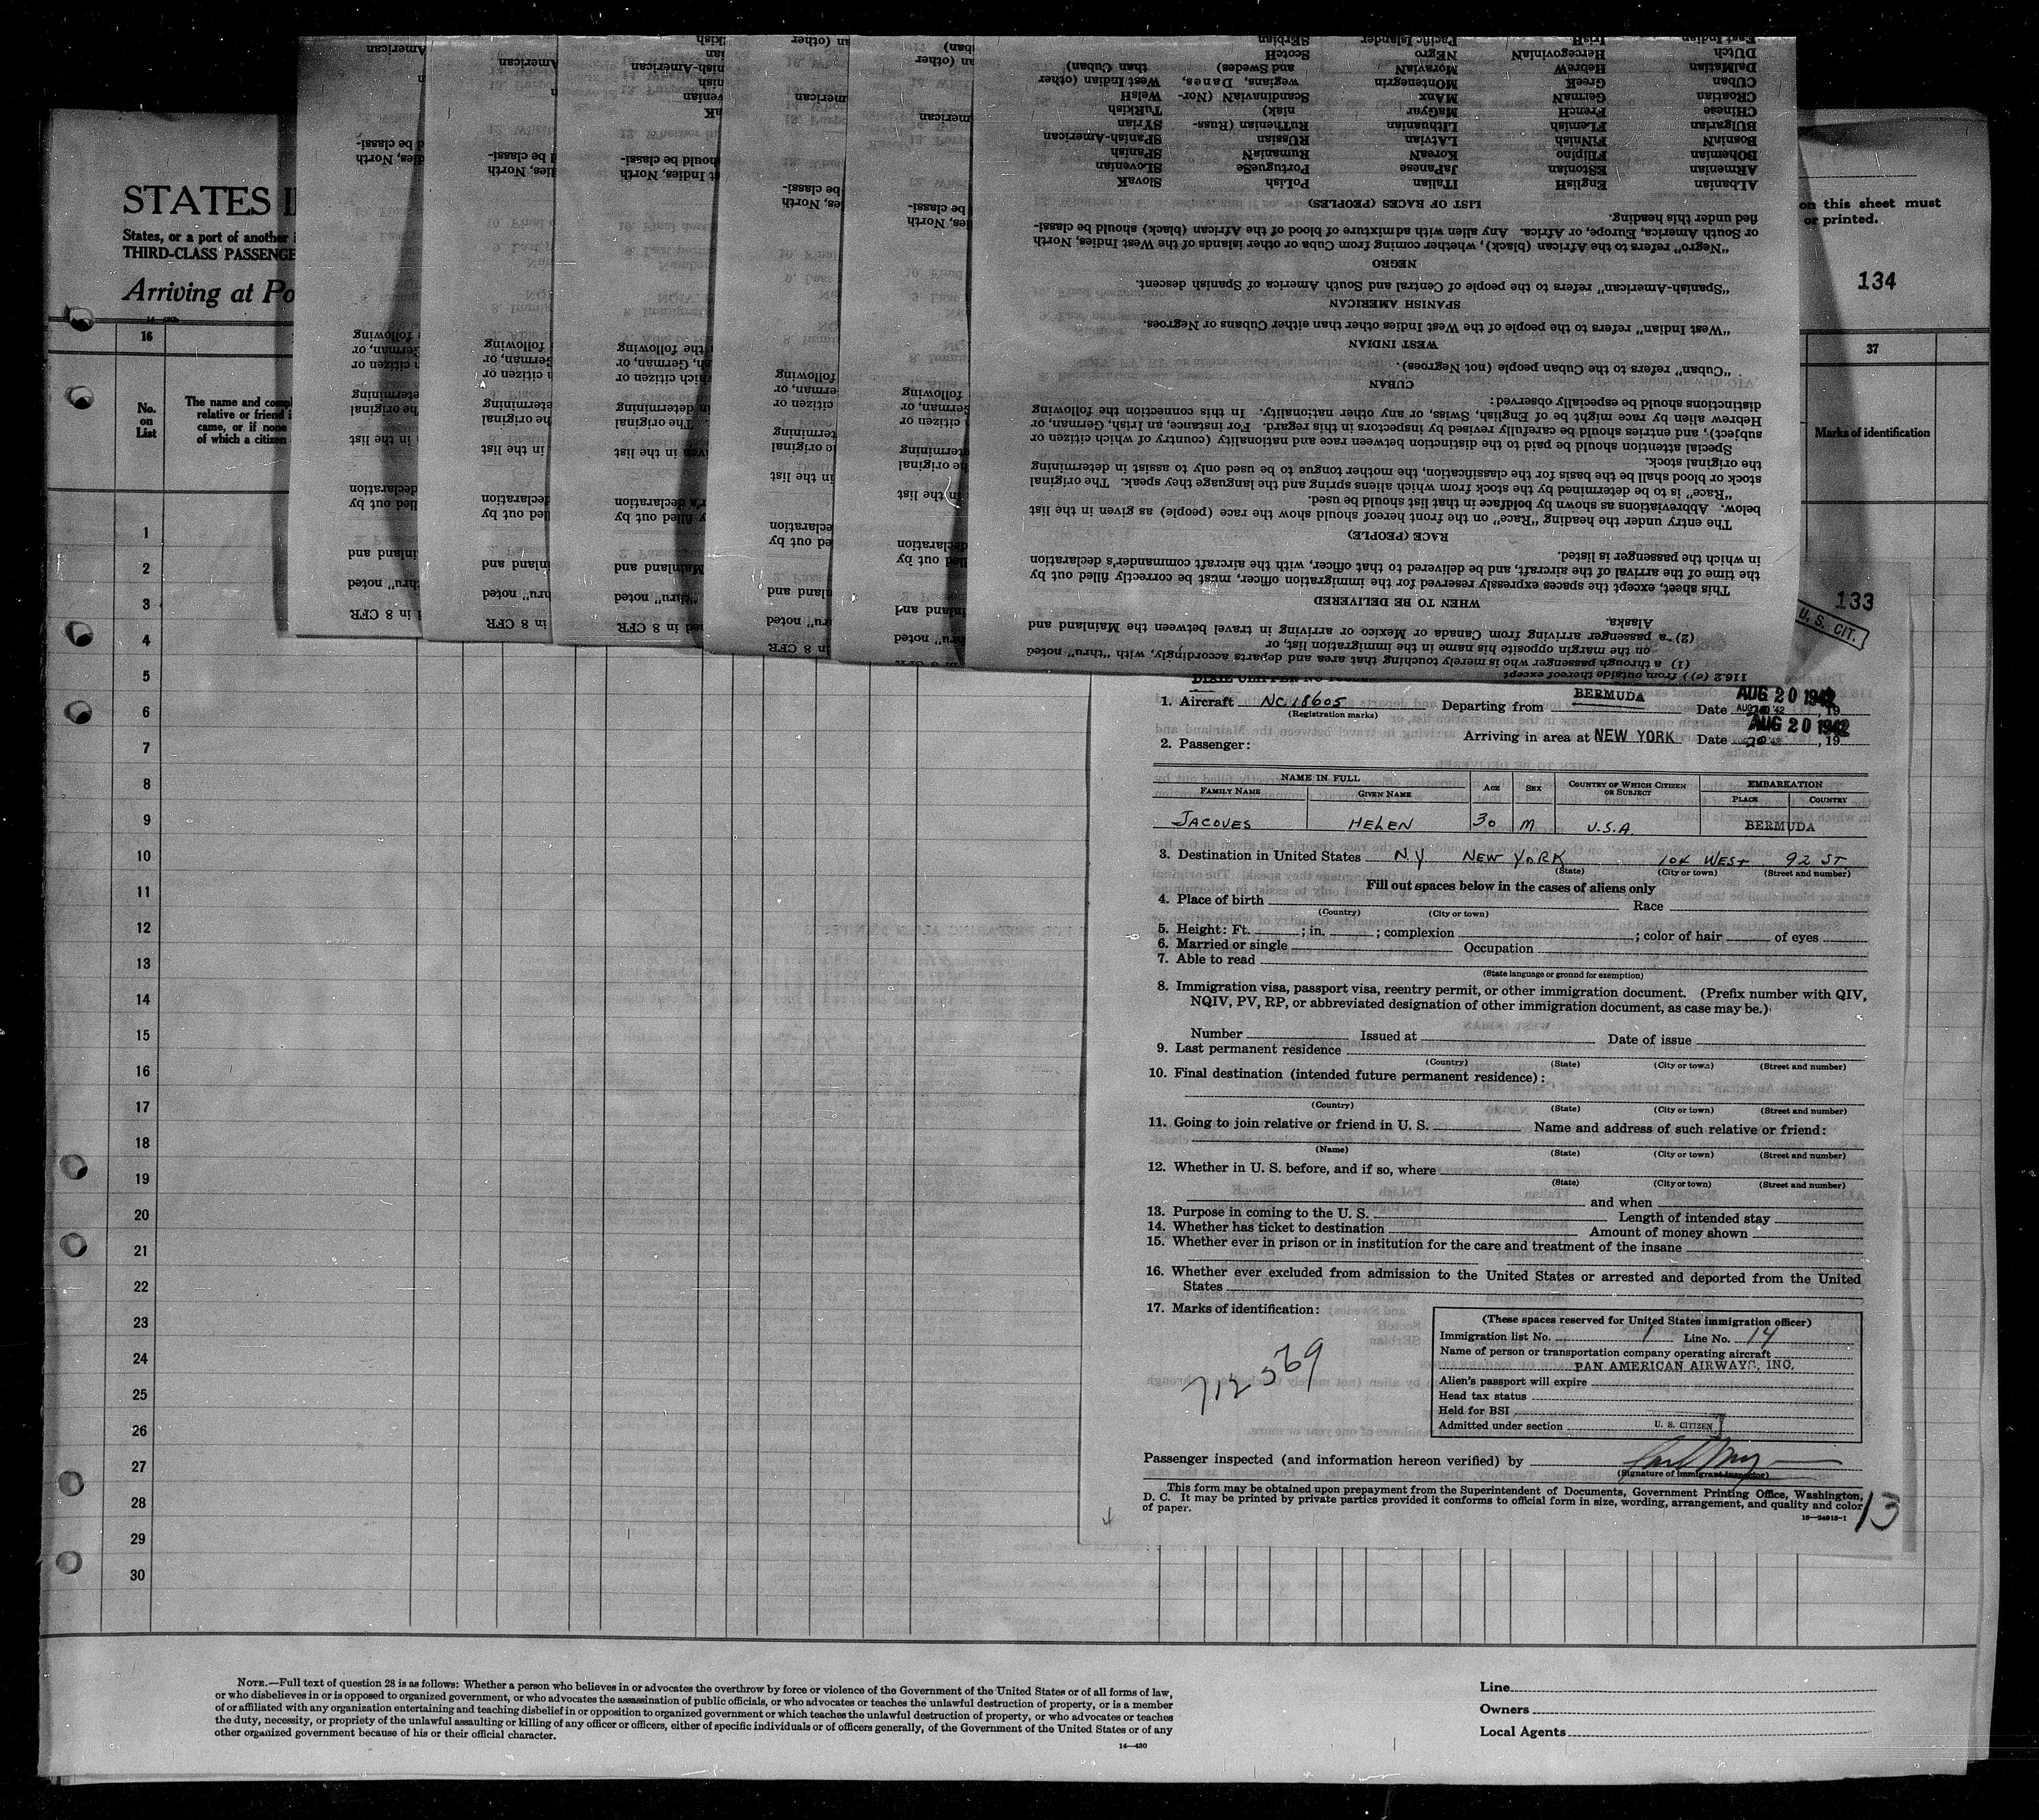 STATES
States, or a port of another
THIRD-CLASS PASSENGE
Arriving at Po
16
No. on List
The name and comp
relative or friend i
came, or if none
of which a citizen
1
2
3
4
5
6
7
8
9
10
11
12
13
14
15
16
17
18
19
20
21
22
23
24
25
26
27
28
29
30
on this sheet must
or printed.
134
37
Marks of identification
133
U. S. CIT.
116.2 (c)) from outside thereof except
(1) a through passenger who is merely touching that area and departs accordingly, with "thru" noted
on the margin opposite his name in the immigration list, or
(2) a passenger arriving from Canada or Mexico or arriving in travel between the Mainland and
Alaska.
WHEN TO BE DELIVERED
This sheet, except the spaces expressly reserved for the immigration officer, must be correctly filled out by
the time of the arrival of the aircraft, and be delivered to that officer, with the aircraft commander's declaration
in which the passenger is listed.
RACE (PEOPLE)
The entry under the heading "Race" on the front hereof should show the race (people) as given in the list
below. Abbreviations as shown by boldface in that list should be used.
"Race" is to be determined by the stock from which aliens spring and the language they speak. The original
stock or blood shall be the basis for the classification, the mother tongue to be used only to assist in determining
the original stock.
Special attention should be paid to the distinction between race and nationality (country of which citizen or
subject), and entries should be carefully revised by inspectors in this regard. For instance, an Irish, German, or
Hebrew alien by race might be of English, Swiss, or any other nationality. In this connection the following
distinctions should be especially observed:
CUBAN
"Cuban" refers to the Cuban people (not Negroes).
WEST INDIAN
"West Indian" refers to the people of the West Indies other than either Cubans or Negroes.
SPANISH AMERICAN
"Spanish-American" refers to the people of Central and South America of Spanish descent.
NEGRO
"Negro" refers to the African (black), whether coming from Cuba or other islands of the West Indies, North
or South America, Europe, or Africa. Any alien with admixture of blood of the African (black) should be classi-
fied under this heading.
LIST OF RACES (PEOPLES)
ALbanian ENglisH ITalian POLish SlovaK
ARMenian EStonian JaPanese PortugueSe SLOvenian
BOHemian FIlipino KoreaN RumaniaN SPanish
BosniaN FINnish LATvian RUSsian SPanish-American
BULgarian FLEmish LITHuanian RuTHenian (Russ- SYrian
CHInese FREnch MaGyar niak) TuRKish
CROatian GermaN MAnx ScandinaviaN (Nor- WelsH
CUban GreeK MOntenegrin wegians, Danes, West Indian (other
DalMatian HebreW MoraviaN and Swedes) than Cuban)
DUtch HercegovinaN NEgro ScotcH
East Indian IrisH Pacific Islander SErbian
1. Aircraft NC 18605 Departing from BERMUDA Date AUG 20 1942
(Registration marks)
Arriving in area at NEW YORK Date AUG 20 1942
2. Passenger:
NAME IN FULL AGE SEX COUNTRY OF WHICH CITIZEN OR SUBJECT EMBARKATION
FAMILY NAME GIVEN NAME PLACE COUNTRY
JACQUES HELEN 30 M U.S.A. BERMUDA
3. Destination in United States N.Y NEW YORK 104 WEST 92 ST.
(State) (City or town) (Street and number)
Fill out spaces below in the cases of aliens only
4. Place of birth Race
(Country) (City or town)
5. Height: Ft. ; in. ; complexion ; color of hair of eyes
6. Married or single Occupation
7. Able to read
(State language or ground for exemption)
8. Immigration visa, passport visa, reentry permit, or other immigration document. (Prefix number with QIV,
NQIV, PV, RP, or abbreviated designation of other immigration document, as case may be.)
Number Issued at Date of issue
9. Last permanent residence
(Country) (State) (City or town) (Street and number)
10. Final destination (intended future permanent residence):
(Country) (State) (City or town) (Street and number)
11. Going to join relative or friend in U. S. Name and address of such relative or friend:
(Name) (State) (City or town) (Street and number)
12. Whether in U. S. before, and if so, where
(State) (City or town) (Street and number)
and when
13. Purpose in coming to the U. S. Length of intended stay
14. Whether has ticket to destination Amount of money shown
15. Whether ever in prison or in institution for the care and treatment of the insane
16. Whether ever excluded from admission to the United States or arrested and deported from the United
States
17. Marks of identification:
712569
(These spaces reserved for United States immigration officer)
Immigration list No. 1 Line No. 14
Name of person or transportation company operating aircraft
PAN AMERICAN AIRWAYS, INC.
Alien's passport will expire
Head tax status
Held for BSI
Admitted under section U. S. CITIZEN
Passenger inspected (and information hereon verified) by
(Signature of immigrant inspector)
This form may be obtained upon prepayment from the Superintendent of Documents, Government Printing Office, Washington,
D. C. It may be printed by private parties provided it conforms to official form in size, wording, arrangement, and quality and color
of paper.
16—24915-1
13
NOTE.—Full text of question 28 is as follows: Whether a person who believes in or advocates the overthrow by force or violence of the Government of the United States or of all forms of law,
or who disbelieves in or is opposed to organized government, or who advocates the assassination of public officials, or who advocates or teaches the unlawful destruction of property, or is a member
of or affiliated with any organization entertaining and teaching disbelief in or opposition to organized government or which teaches the unlawful destruction of property, or who advocates or teaches
the duty, necessity, or propriety of the unlawful assaulting or killing of any officer or officers, either of specific individuals or of officers generally, of the Government of the United States or of any
other organized government because of his or their official character.
14—430
Line
Owners
Local Agents